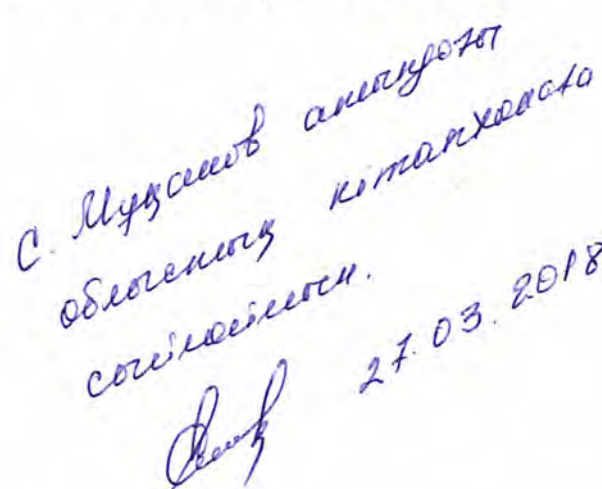 С. Мұқанов атындағы
облыстық кітапханаға
сыйлаймын.
27.03.2018